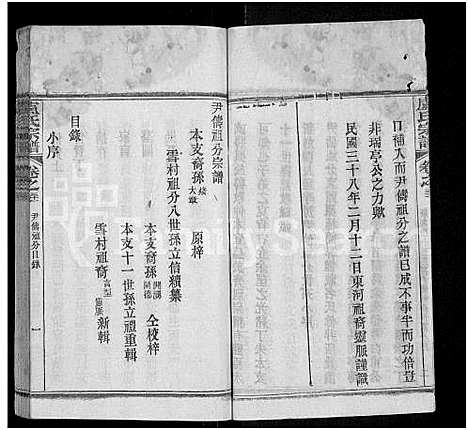 盧氏宗譜
卷之
口補入而尹儔祖分之譜已成不事半而功倍豈
非瑞亭公之力歟
民國三十八年二月十二日東河祖裔靈脈謹識
尹儔祖分宗譜
本支裔孫 大章 原梓
雪村祖分八世孫立信續纂
本支裔孫 仝校梓
本支十一世孫立禮重輯
雪村祖裔 新輯
目錄
小序
盧氏宗譜
卷之
尹儔祖分目錄
一